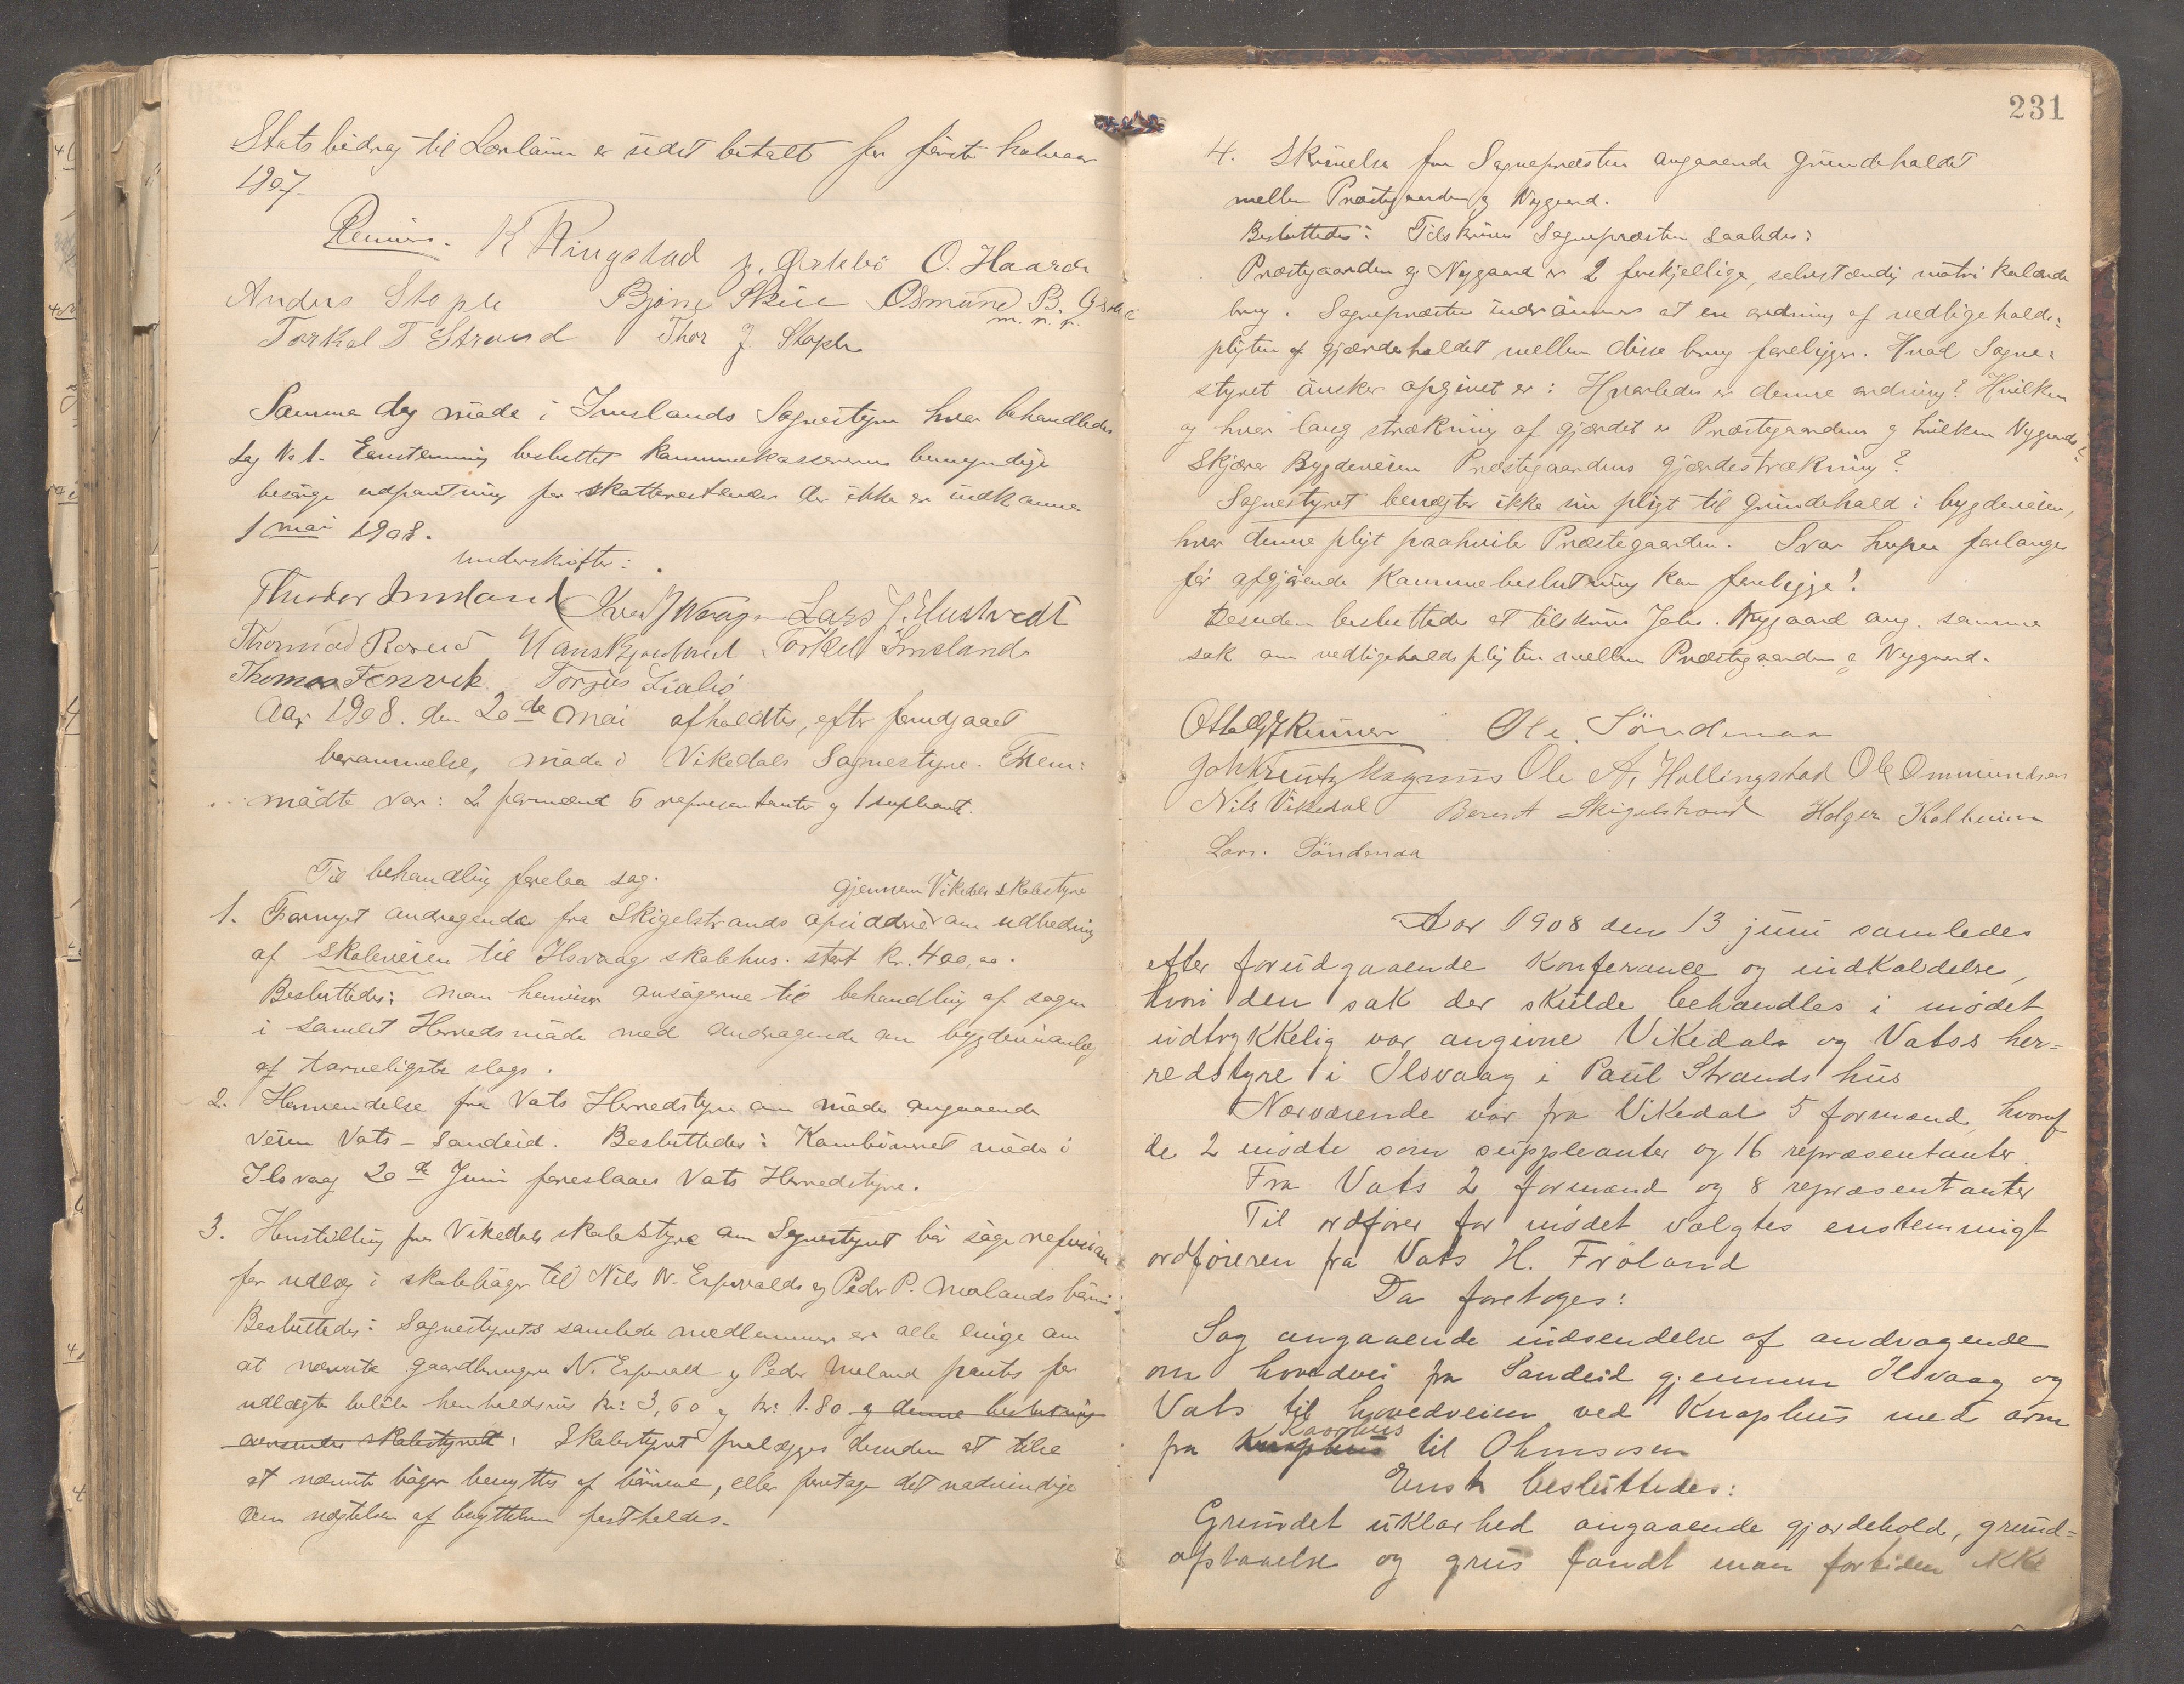 Statsbidrag til Lærlönn er sidst betalt for förste halvaar
1907.
Reimers. K Ringstad J. Östebö O. Haarde
Anders Stople Bjarne Skeie Osmund B. Östebö
m. n. p.
Torkel T Strand Thor J. Stople
Samme dag möde i Imslands Sognestyre hvor behandledes
Sag No 1. Eenstemmig besluttet kommunekassereren bemyndiges
besörge udpantning for skatterestancer der ikke er indkomne
1 mai 1908.
underskrifter:
Theodor Imsland Lars J. Mustvedt
Torkel Imsland
Thomas Fenvik Torjus Lialiö
Aar 1908. den 20de Mai afholdtes, efter forudgaaet
berammelse, möde i Vikedals Sognestyre. Frem:
mödte var: 2 formænd 6 representanter og 1 supleant.
Til behandling forelaa sag.
gjennem Vikedals skolestyre
1. Fornyet andragende fra Skigelstrands opsiddere om udbedring
af skoleveien til Ilsvaag skolehus. stort kr. 400,00.
Besluttedes: Man henviser ansögerne til behandling af sagen
i samlet Herredsmöde med andragende om bygdeveianlæg
af tarveligste slags.
2. Henvendelse fra Vats Herredstyre om möde angaaende
veien Vats - Sandeid. Besluttedes: Kombineret möde i
Ilsvaag 20de Juni foreslaaes Vats Herredstyre.
3. Henstilling fra Vikedals skolestyre om Sognestyret bör söge refusion
for udlæg i skoleböger til Nils N. Espevolds og Peder P. Mælands börn.
Besluttedes: Sognestyrets samlede medlemmer er alle enige om
at nævnte gaardbrugere N. Espevold og Peder Mæland pantes for
udlægte belöb henholdsvis kr: 3,60 og kr: 1.80 og denne beslutning
oversendes skolestyret. Skolestyret forelægges desuden at tilse
at nævnte böger benyttes af börnene, eller foretage det nödvendige
om negtelsen af benyttelsen fastholdes.
231
4. Skrivelse fra Sognepræsten angaaende Grindeholdet
mellem Præstegaarden og Nygaard.
Besluttedes: Tilskrive Sognepræsten saaledes:
Præstegaarden og Nygaard er 2 forskjellige, selvstændig matrikulerede
brug. Sognepræsten indrömmes at en ordning af vedligeholds:
pligten af gjærdeholdet mellem disse brug foreligger. Hvad Sogne:
styret önsker opgivet er: Hvorledes er denne ordning? Hvilken
og hvor lang strækning af gjærdet er Præstegaardens og hvilken Nygaards?
Skjærer Bygdeveien Præstegaardens gjærdestrækning?
Sognestyret benegter ikke sin pligt til Grindehold i bygdeveien,
hvor denne pligt paahviler Præstegaarden. Svar herpaa forlanges
för afgjörende kommunebeslutning kan foreligge!
Desuden besluttedes at tilskrive Johs. Nygaard ang. samme
sak om vedligeholdspligten mellem Præstegaarden og Nygaard.
Ole Söndenaa
Joh Kreutz Magnus Ole A. Hallingstad Ole Ommundsen
Nils Vikedal Berent Skigelstrand Holger Kolheim
Lars. Söndenaa
Aar 1908 den 13 juni samledes
efter forudgaaende Konferance og indkaldelse,
hvori den sak der skulde behandles i mödet
udtrykkelig var angivne Vikedals og Vatss her-
redstyre i Ilsvaag i Paul Strands hus
Nærværende var fra Vikedal 5 formænd, hvoraf
de 2 mödte som suppleanter og 16 repræsentanter.
Fra Vats 2 formænd og 8 repræsentanter
Til ordförer for mödet valgtes enstemmigt
ordföreren fra Vats H. Fröland
Da foretoges:
Sag angaaende indsendelse af andragende
om hovedvei fra Sandeid gjennem Ilsvaag og
Vats til hovedveien ved Knaphus med arm
Kaarhus
fra Knaphus til Ølensosen
Enst besluttedes:
Grundet uklarhed angaaende gjærdehold, grund-
afstaaelse og grus fandt man fortiden ikke